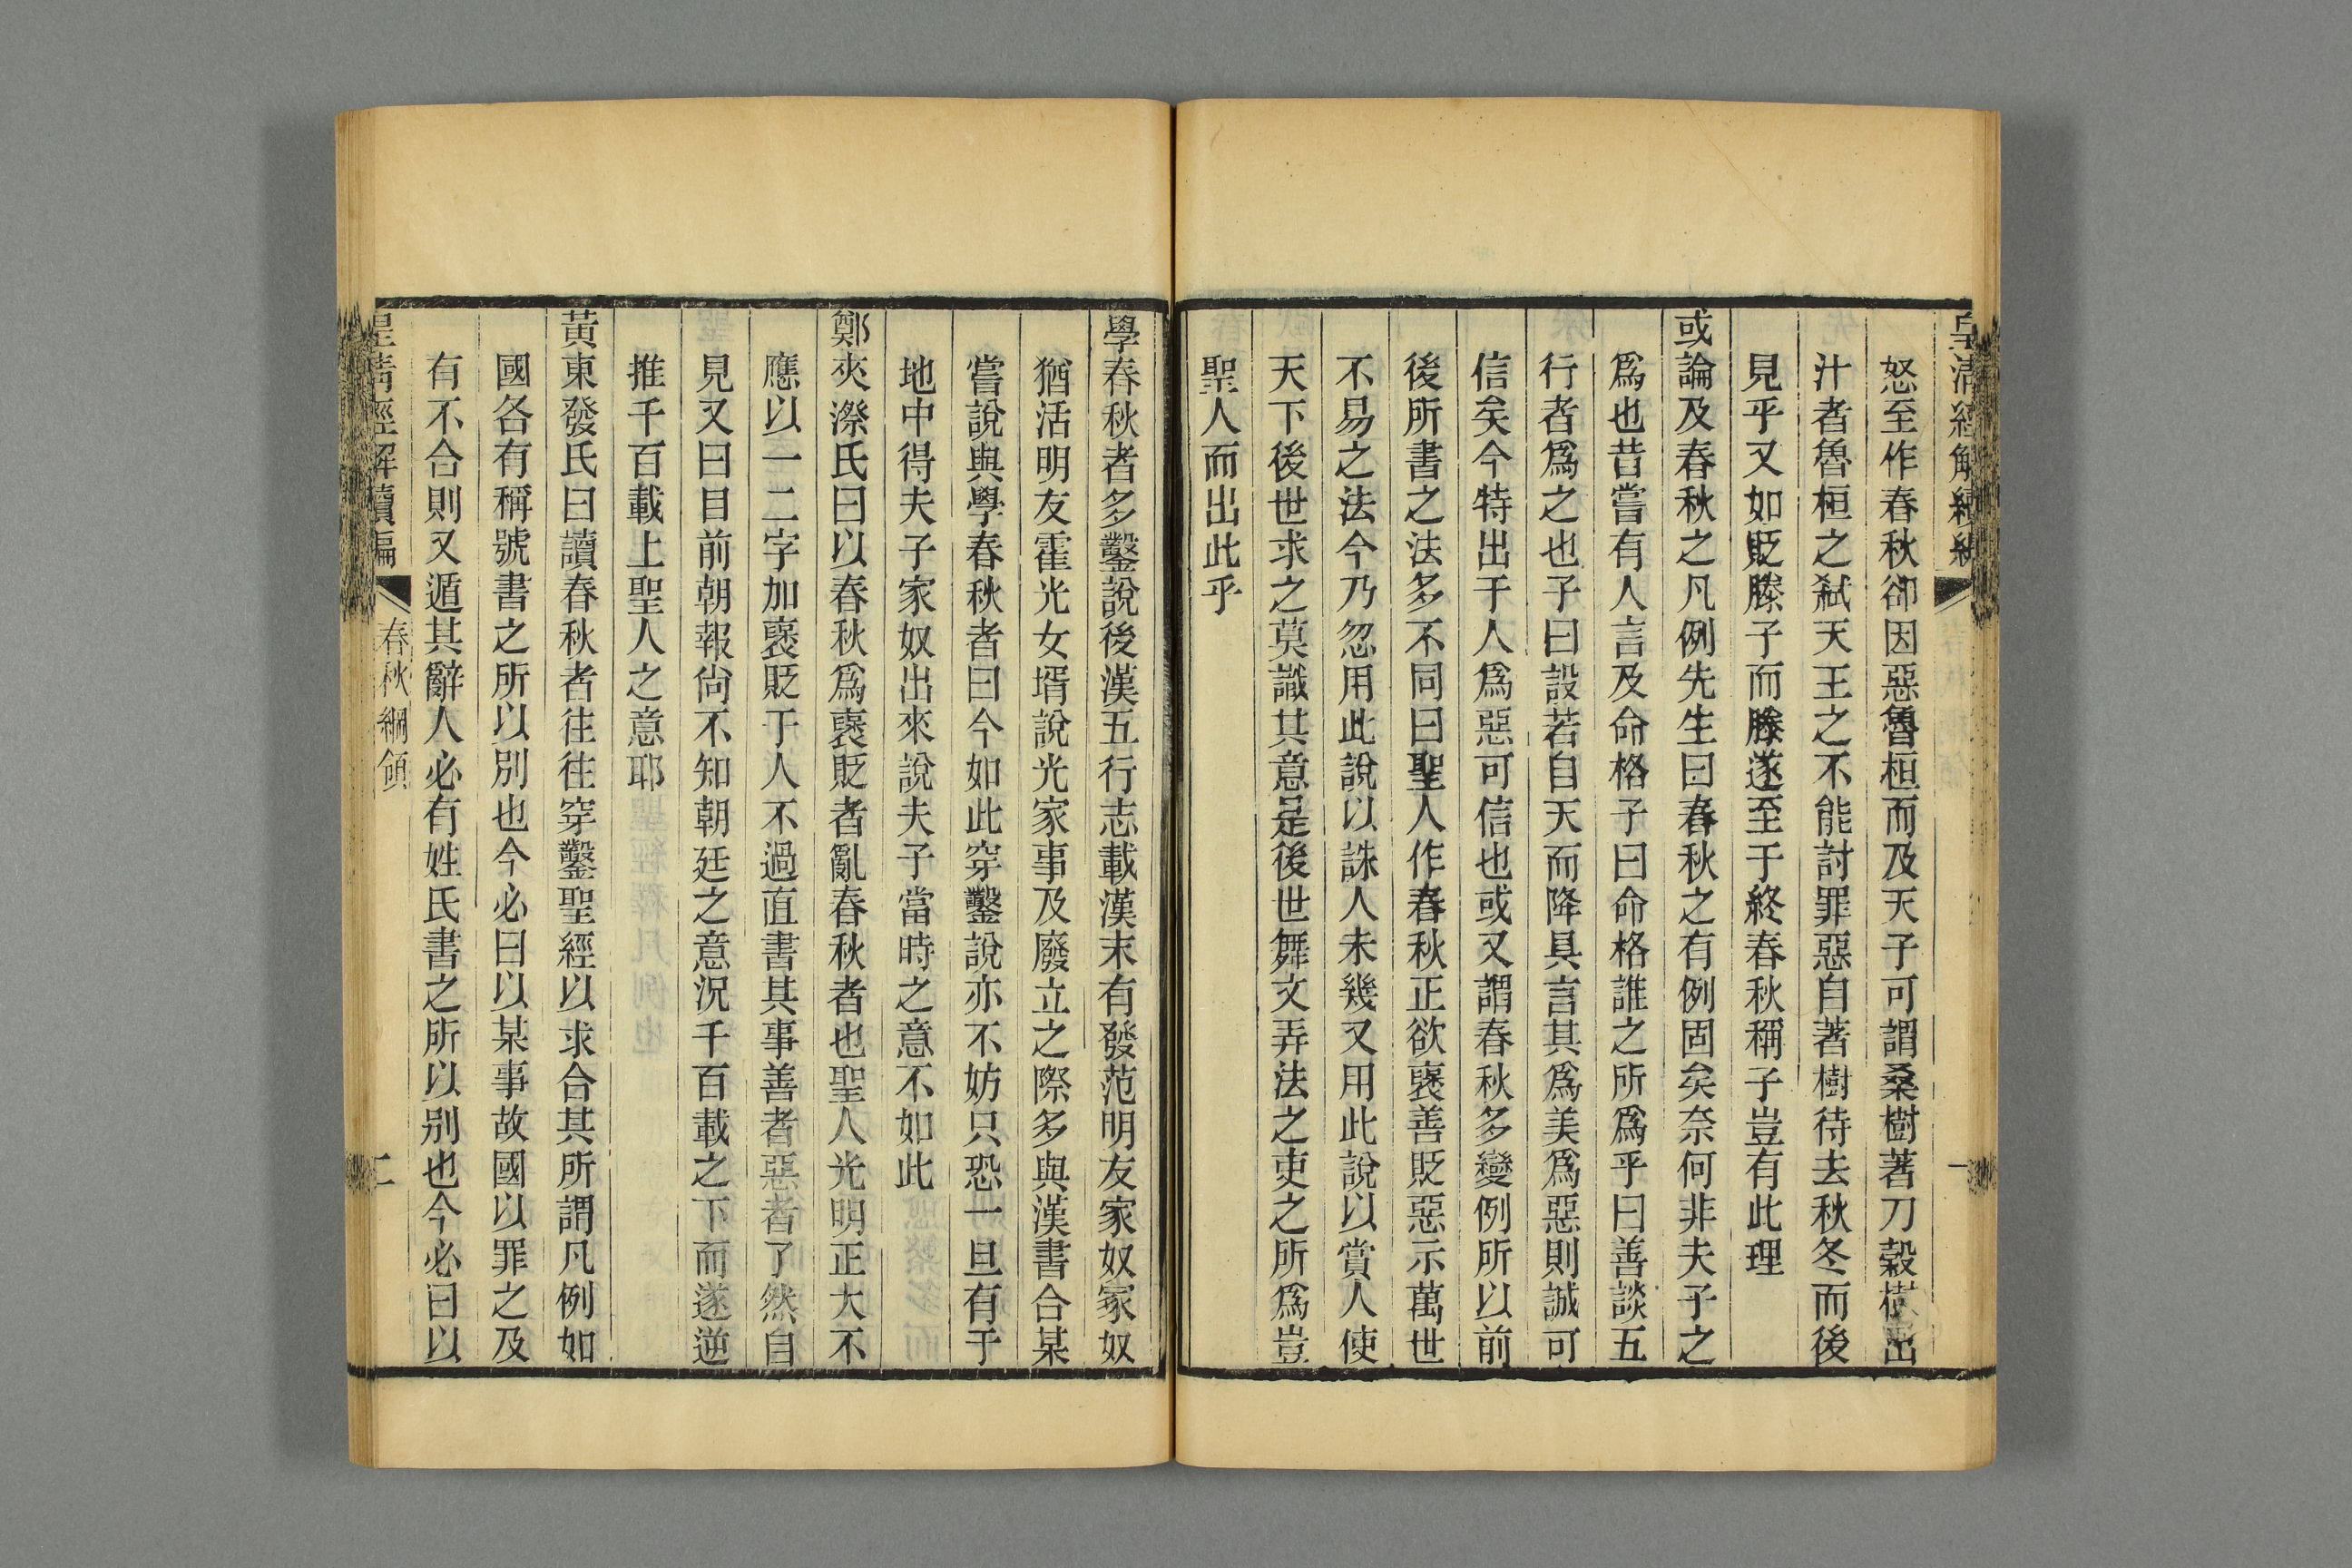 皇清經解續編
一
怒至作春秋卻因惡魯桓而及天子可謂桑樹著刀穀樹出
汁者魯桓之弑天王之不能討罪惡自著樹待去秋冬而後
見乎又如貶滕子而滕遂至于終春秋稱子豈有此理
或論及春秋之凡例先生曰春秋之有例固矣奈何非夫子之
爲也昔嘗有人言及命格子曰命格誰之所爲乎曰善談五
行者爲之也子曰設若自天而降具言其爲美爲惡則誠可
信矣今特出于人爲惡可信也或又謂春秋多變例所以前
後所書之法多不同曰聖人作春秋正欲襃善貶惡示萬世
不易之法今乃忽用此說以誅人未幾又用此說以賞人使
天下後世求之莫識其意是後世舞文弄法之吏之所爲豈
聖人而出此乎
學春秋者多鑿說後漢五行志載漢末有發范明友家奴冢奴
猶活明友霍光女壻說光家事及廢立之際多與漢書合某
嘗說與學春秋者曰今如此穿鑿說亦不妨只恐一旦有于
地中得夫子家奴出來說夫子當時之意不如此
鄭夾漈氏曰以春秋爲襃貶者亂春秋者也聖人光明正大不
應以一二字加襃貶于人不過直書其事善者惡者了然自
見又曰目前朝報尙不知朝廷之意況千百載之下而遂逆
推千百載上聖人之意耶
黃東發氏曰讀春秋者往往穿鑿聖經以求合其所謂凡例如
國各有稱號書之所以別也今必曰以某事故國以罪之及
有不合則又遁其辭人必有姓氏書之所以別也今必曰以
皇清經解續編
春秋綱領
二